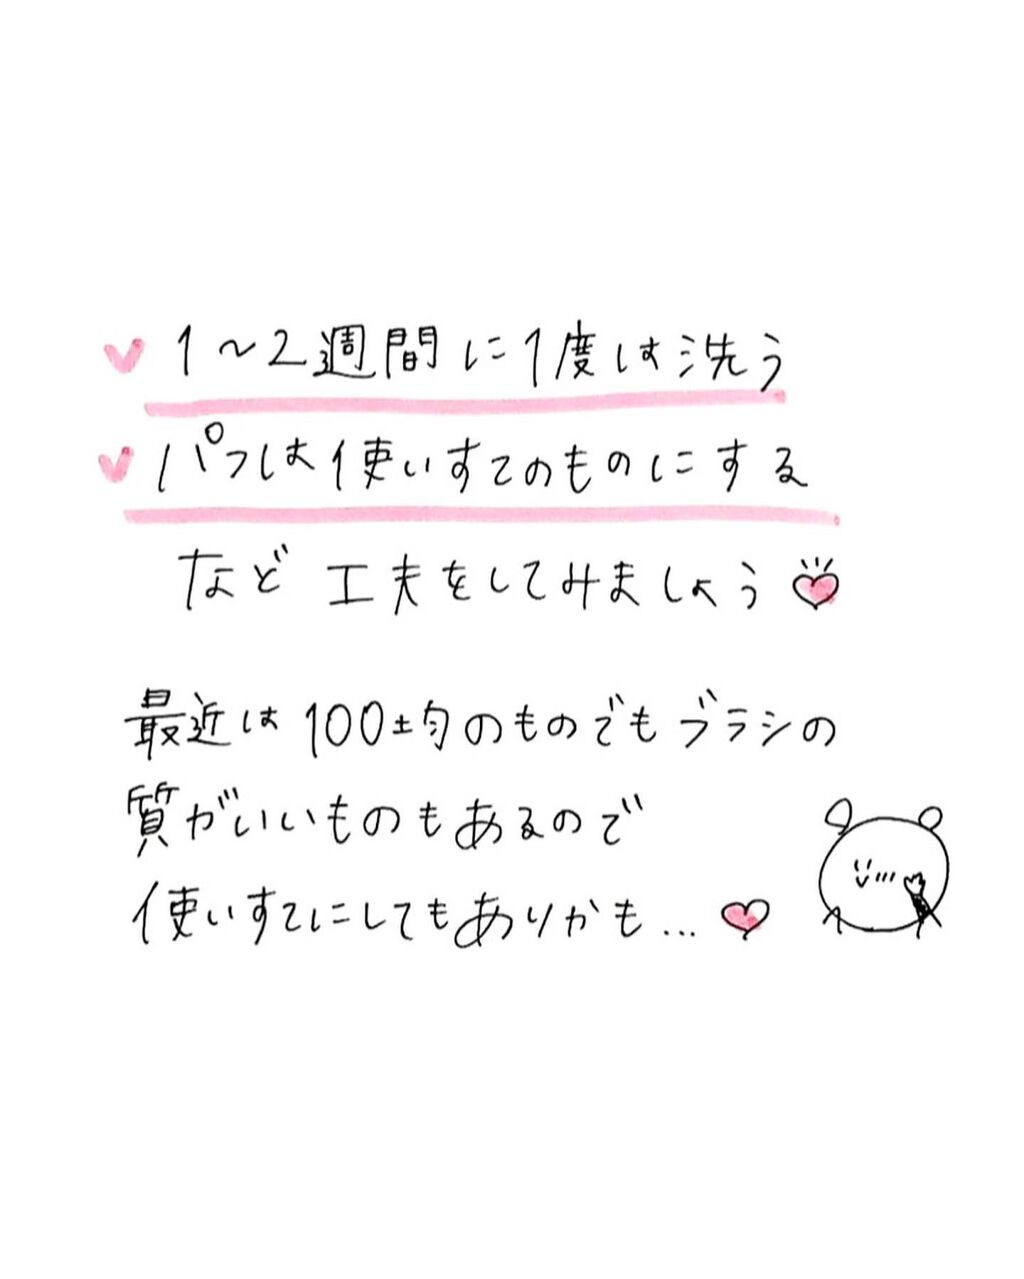 1～2週間に1度は洗う
パフは使いすてのものにする
など 工夫をしてみましょう
最近は100均のものでもブラシの
質がいいものもあるので
使いすてにしてもありかも…